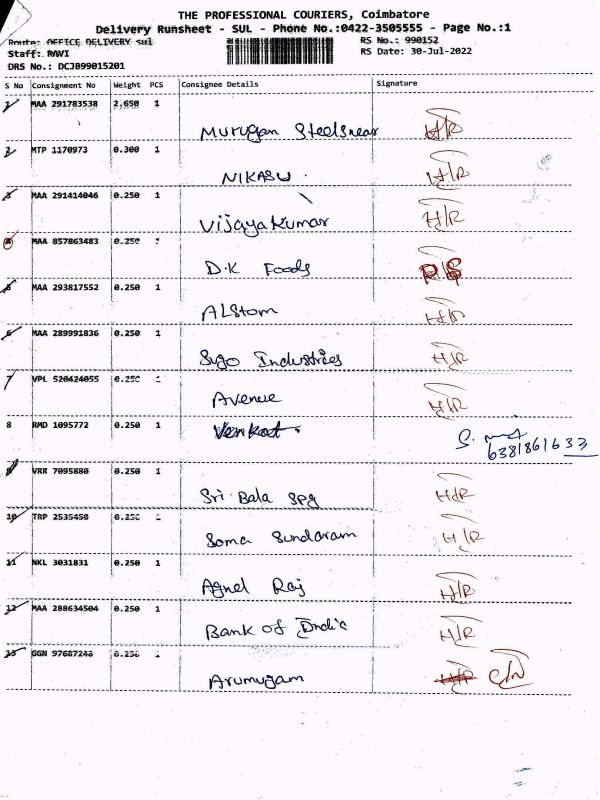 THE PROFESSIONAL COURIERS, Coimbatore
Delivery Runsheet - SUL - Phone No.:0422-3505555 - Page No.:1
Route: OFFICE DELIVERY sul
RS No.: 990152
Staff: RAVI
RS Date: 30-Jul-2022
DRS No.: DCJB99015201
S No Consignment No Weight PCS Consignee Details Signature
1 MAA 291783538 2.650 1
Murugan Steelsnear H/R
2 MTP 1170973 0.300 1
NIKASU. H/R
3 MAA 291414046 0.250 1
Vijayakumar H/R
4 MAA 857863483 0.250 1
D.K Foods
5 MAA 293817552 0.250 1
ALStom H/R
6 MAA 289991836 0.250 1
Sugo Industries H/R
7 VPL 520424055 0.250 1
Avenue H/R
8 RMD 1095772 0.250 1 Venkat.
6381861633
9 VRR 7095880 0.250 1
Sri Bala Spg H/R
10 TRP 2535450 0.250 1
Soma Sundaram H/R
11 NKL 3031831 0.250 1
Agnel Raj H/R
12 MAA 288634504 0.250 1
Bank of India H/R
13 GGN 97687248 0.250 1
Arumugam H/R